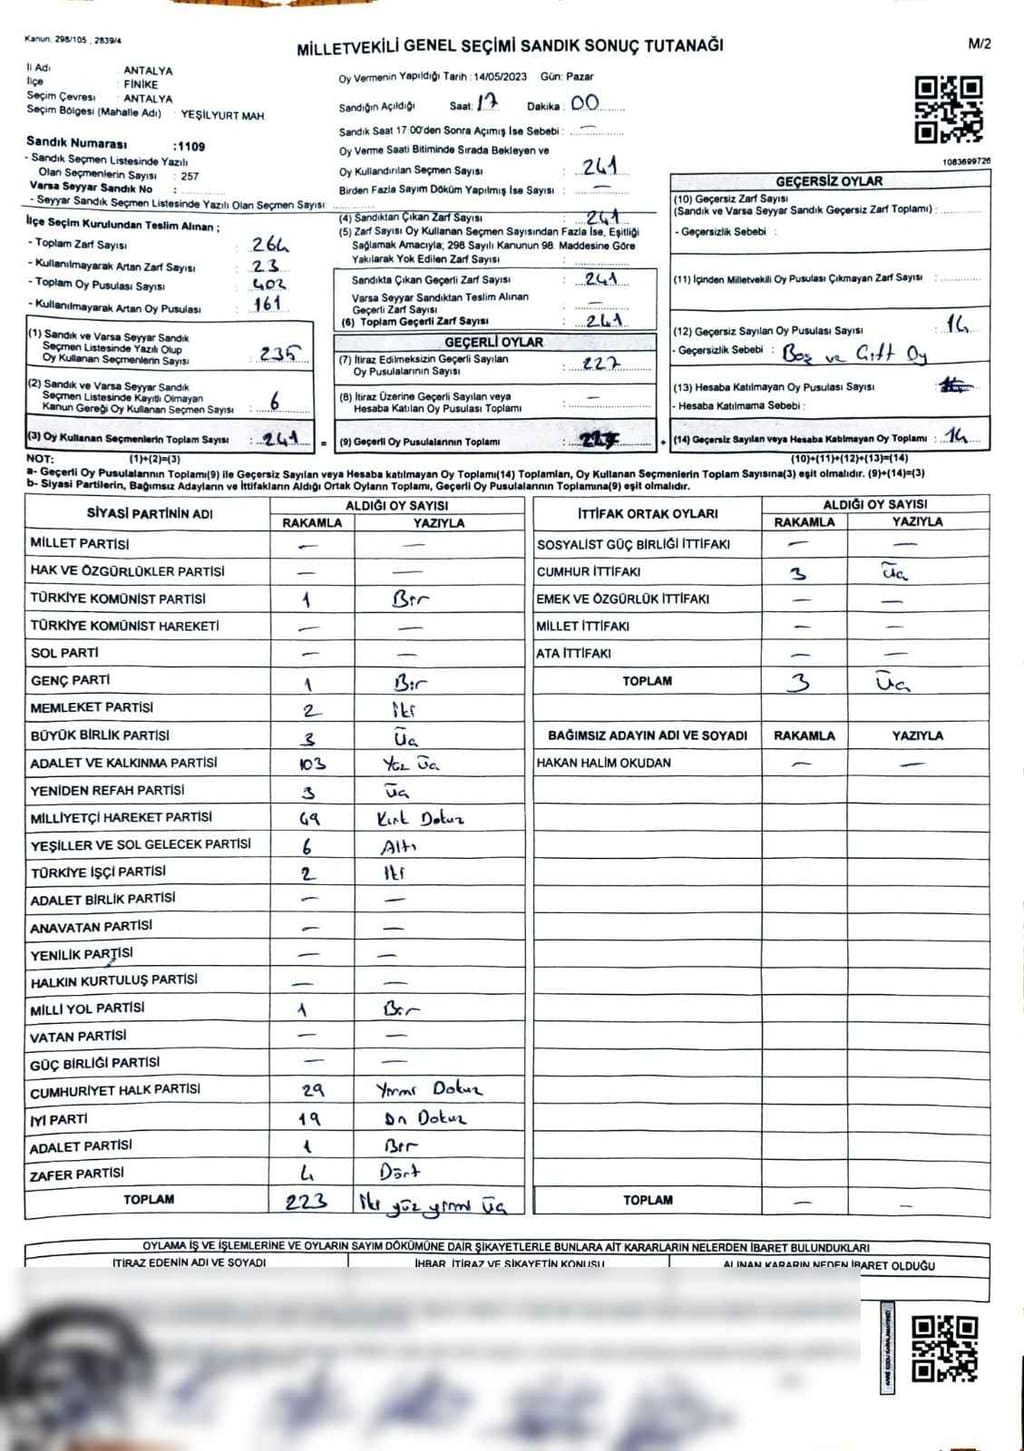 Kanun: 298/105 , 2839/4
MİLLETVEKİLİ GENEL SEÇİMİ SANDIK SONUÇ TUTANAĞI
M/2
İl Adı ANTALYA
İlçe : FİNİKE
Seçim Çevresi : ANTALYA
Seçim Bölgesi (Mahalle Adı) : YEŞİLYURT MAH.
Sandık Numarası :1109
- Sandık Seçmen Listesinde Yazılı
Olan Seçmenlerin Sayısı : 257
Varsa Seyyar Sandık No :
- Seyyar Sandık Seçmen Listesinde Yazılı Olan Seçmen Sayısı :
Oy Vermenin Yapıldığı Tarih : 14/05/2023 Gün: Pazar
Sandığın Açıldığı Saat: 17 Dakika : 00
Sandık Saat 17:00'den Sonra Açımış İse Sebebi : —
Oy Verme Saati Bitiminde Sırada Bekleyen ve
Oy Kullandırılan Seçmen Sayısı : 241
Birden Fazla Sayım Döküm Yapılmış İse Sayısı : —
1083699726
İlçe Seçim Kurulundan Teslim Alınan ;
- Toplam Zarf Sayısı : 264
- Kullanılmayarak Artan Zarf Sayısı : 23
- Toplam Oy Pusulası Sayısı : 402
- Kullanılmayarak Artan Oy Pusulası : 161
(1) Sandık ve Varsa Seyyar Sandık
Seçmen Listesinde Yazılı Olup
Oy Kullanan Seçmenlerin Sayısı : 235
(2) Sandık ve Varsa Seyyar Sandık
Seçmen Listesinde Kayıtlı Olmayan
Kanun Gereği Oy Kullanan Seçmen Sayısı : 6
(3) Oy Kullanan Seçmenlerin Toplam Sayısı : 241 =
(4) Sandıktan Çıkan Zarf Sayısı : 241
(5) Zarf Sayısı Oy Kullanan Seçmen Sayısından Fazla İse, Eşitliği
Sağlamak Amacıyla; 298 Sayılı Kanunun 98. Maddesine Göre
Yakılarak Yok Edilen Zarf Sayısı :
Sandıkta Çıkan Geçerli Zarf Sayısı : 241
Varsa Seyyar Sandıktan Teslim Alınan
Geçerli Zarf Sayısı : —
(6) Toplam Geçerli Zarf Sayısı : 241
GEÇERLİ OYLAR
(7) İtiraz Edilmeksizin Geçerli Sayılan
Oy Pusulalarının Sayısı : 227
(8) İtiraz Üzerine Geçerli Sayılan veya
Hesaba Katılan Oy Pusulası Toplamı : —
(9) Geçerli Oy Pusulalarının Toplamı : 227 +
GEÇERSİZ OYLAR
(10) Geçersiz Zarf Sayısı
(Sandık ve Varsa Seyyar Sandık Geçersiz Zarf Toplamı) :
- Geçersizlik Sebebi :
(11) İçinden Milletvekili Oy Pusulası Çıkmayan Zarf Sayısı :
(12) Geçersiz Sayılan Oy Pusulası Sayısı : 14
- Geçersizlik Sebebi : Boş ve Çift Oy
(13) Hesaba Katılmayan Oy Pusulası Sayısı
- Hesaba Katılmama Sebebi :
(14) Geçersiz Sayılan veya Hesaba Katılmayan Oy Toplamı : 14
NOT: (1)+(2)=(3) (10)+(11)+(12)+(13)=(14)
a- Geçerli Oy Pusulalarının Toplamı(9) ile Geçersiz Sayılan veya Hesaba katılmayan Oy Toplamı(14) Toplamları, Oy Kullanan Seçmenlerin Toplam Sayısına(3) eşit olmalıdır. (9)+(14)=(3)
b- Siyasi Partilerin, Bağımsız Adayların ve İttifakların Aldığı Ortak Oyların Toplamı, Geçerli Oy Pusulalarının Toplamına(9) eşit olmalıdır.
SİYASİ PARTİNİN ADI ALDIĞI OY SAYISI
RAKAMLA YAZIYLA
MİLLET PARTİSİ — —
HAK VE ÖZGÜRLÜKLER PARTİSİ — —
TÜRKİYE KOMÜNİST PARTİSİ 1 Bir
TÜRKİYE KOMÜNİST HAREKETİ — —
SOL PARTİ — —
GENÇ PARTİ 1 Bir
MEMLEKET PARTİSİ 2 İki
BÜYÜK BİRLİK PARTİSİ 3 Üç
ADALET VE KALKINMA PARTİSİ 103 Yüz Üç
YENİDEN REFAH PARTİSİ 3 Üç
MİLLİYETÇİ HAREKET PARTİSİ 49 Kırk Dokuz
YEŞİLLER VE SOL GELECEK PARTİSİ 6 Altı
TÜRKİYE İŞÇİ PARTİSİ 2 İki
ADALET BİRLİK PARTİSİ — —
ANAVATAN PARTİSİ — —
YENİLİK PARTİSİ — —
HALKIN KURTULUŞ PARTİSİ — —
MİLLİ YOL PARTİSİ 1 Bir
VATAN PARTİSİ — —
GÜÇ BİRLİĞİ PARTİSİ — —
CUMHURİYET HALK PARTİSİ 29 Yirmi Dokuz
İYİ PARTİ 19 On Dokuz
ADALET PARTİSİ 1 Bir
ZAFER PARTİSİ 4 Dört
TOPLAM 223 İki yüz yirmi Üç
İTTİFAK ORTAK OYLARI ALDIĞI OY SAYISI
RAKAMLA YAZIYLA
SOSYALİST GÜÇ BİRLİĞİ İTTİFAKI — —
CUMHUR İTTİFAKI 3 Üç
EMEK VE ÖZGÜRLÜK İTTİFAKI — —
MİLLET İTTİFAKI — —
ATA İTTİFAKI — —
TOPLAM 3 Üç
BAĞIMSIZ ADAYIN ADI VE SOYADI RAKAMLA YAZIYLA
HAKAN HALİM OKUDAN — —
TOPLAM — —
OYLAMA İŞ VE İŞLEMLERİNE VE OYLARIN SAYIM DÖKÜMÜNE DAİR ŞİKAYETLERLE BUNLARA AİT KARARLARIN NELERDEN İBARET BULUNDUKLARI
İTİRAZ EDENİN ADI VE SOYADI İHBAR, İTİRAZ VE ŞİKAYETİN KONUSU ALINAN KARARIN NEDEN İBARET OLDUĞU